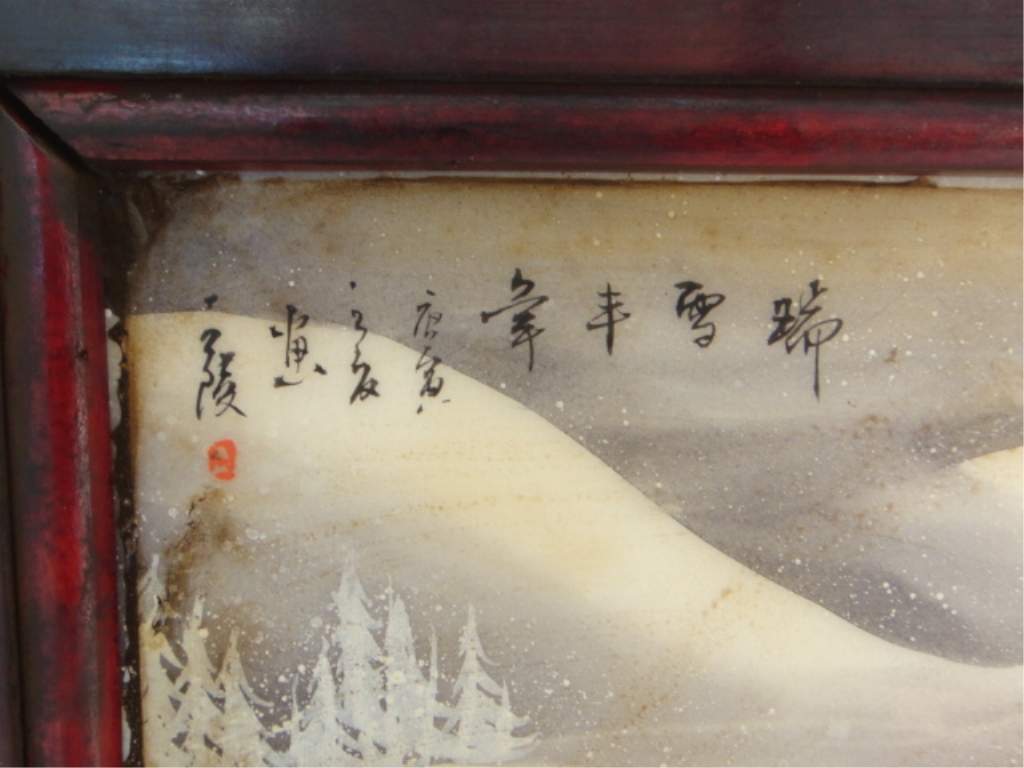 瑞雪丰年
庚寅
之夏